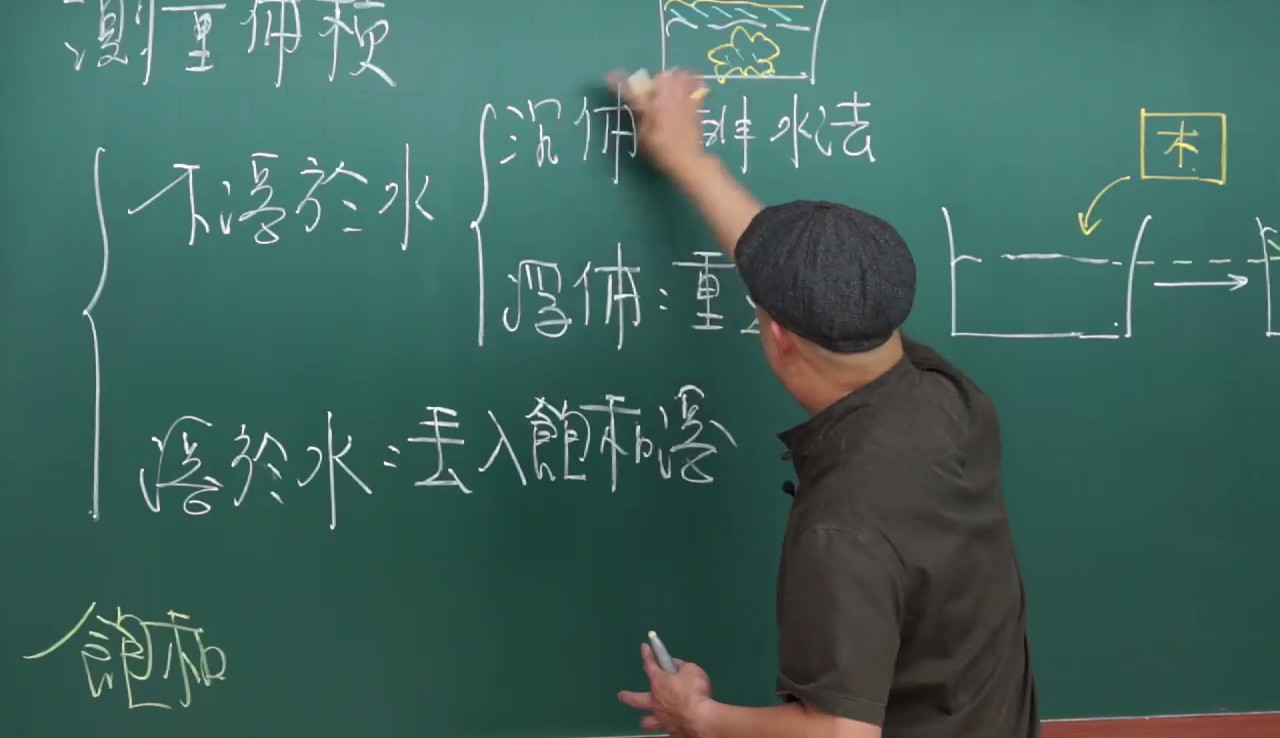 測量体積
沉体 排水法
木
不溶於水
浮体：重
溶於水：丟入飽和溶
飽和